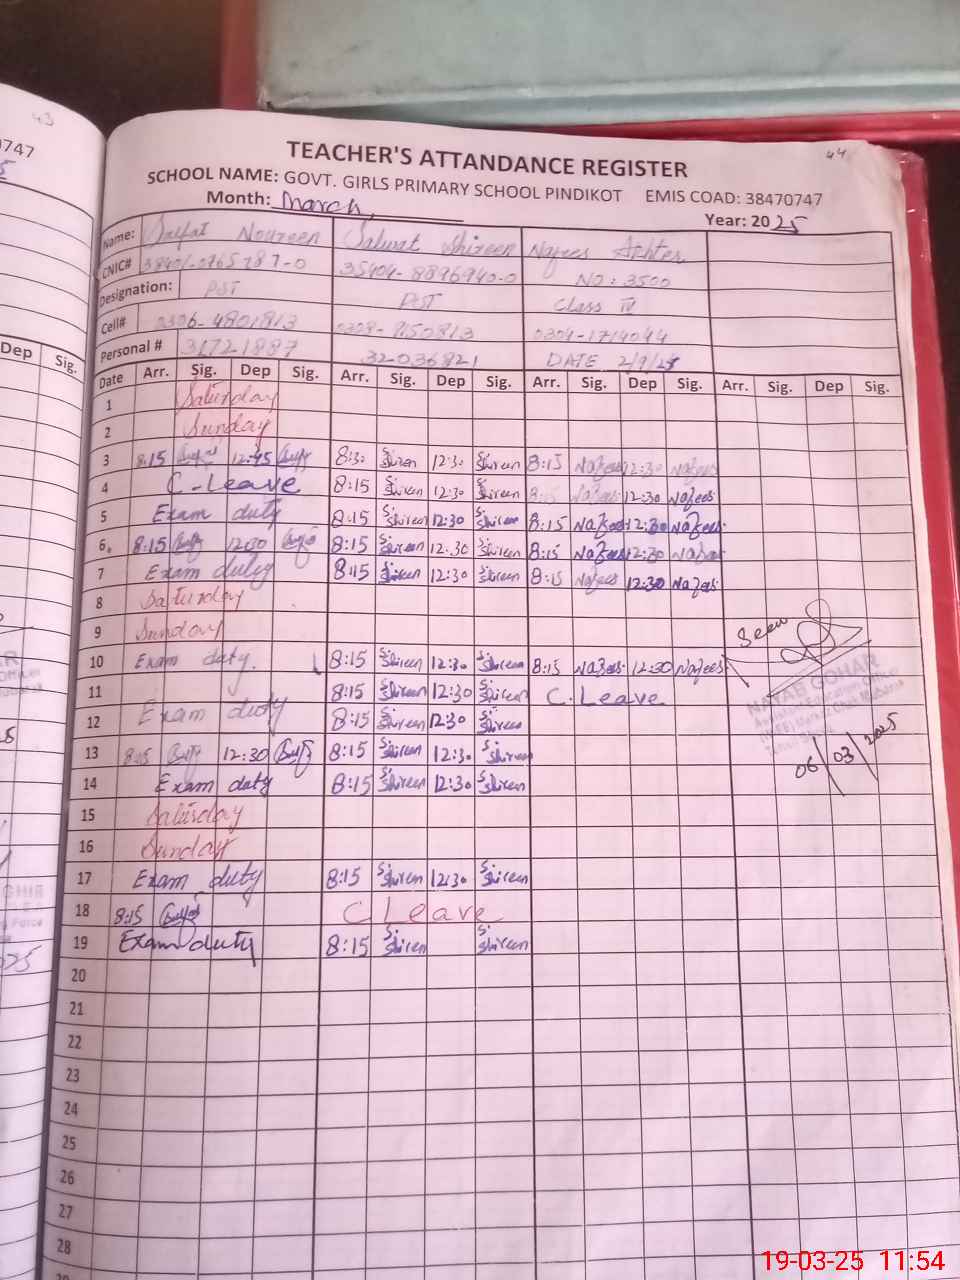 43
0747
44
TEACHER'S ATTANDANCE REGISTER
SCHOOL NAME: GOVT. GIRLS PRIMARY SCHOOL PINDIKOT EMIS COAD: 38470747
Month: March Year: 2025
Name: Noureen Salwat Shireen Nafees Achter
CNIC# 35404-8896940-0 NO: 3500
Designation: PST PST Class IV
Cell# 0306-4801813 0304-1714044
Personal # 31721887 32-036821 DATE 2/9/
Dep Sig.
Date Arr. Sig. Dep Sig. Arr. Sig. Dep Sig. Arr. Sig. Dep Sig. Arr. Sig. Dep Sig.
1 Saturday
2 Sunday
3 8:15 12:45 8:30 Shireen 12:30 Shireen 8:15 Nafees 12:30 Nafees
4 C-Leave 8:15 Shireen 12:30 Shireen 8:15 Nafees 12:30 Nafees
5 Exam duty 8:15 Shireen 12:30 Shireen 8:15 Nafees 12:30 Nafees
6 8:15 8:15 Shireen 12:30 Shireen 8:15 Nafees 12:30 Nafees
7 Exam duty 8:15 Shireen 12:30 Shireen 8:15 Nafees 12:30 Nafees
8 Saturday
9 Sunday
Seen
10 Exam duty. 8:15 Shireen 12:30 Shireen 8:15 Nafees 12:30 Nafees
11 8:15 Shireen 12:30 Shireen C.Leave
NAYAB GOHAR
Assistant Education Officer
12 Exam duty 8:15 Shireen 12:30 Shireen
06/03/2025
13 8:15 12:30 8:15 Shireen 12:30 Shireen
14 Exam duty 8:15 Shireen 12:30 Shireen
15 Saturday
16 Sunday
17 Exam duty 8:15 Shireen 12:30 Shireen
18 8:15 C Leave
19 Exam duty 8:15 Shireen Shireen
20
21
22
23
24
25
26
27
28
19-03-25 11:54